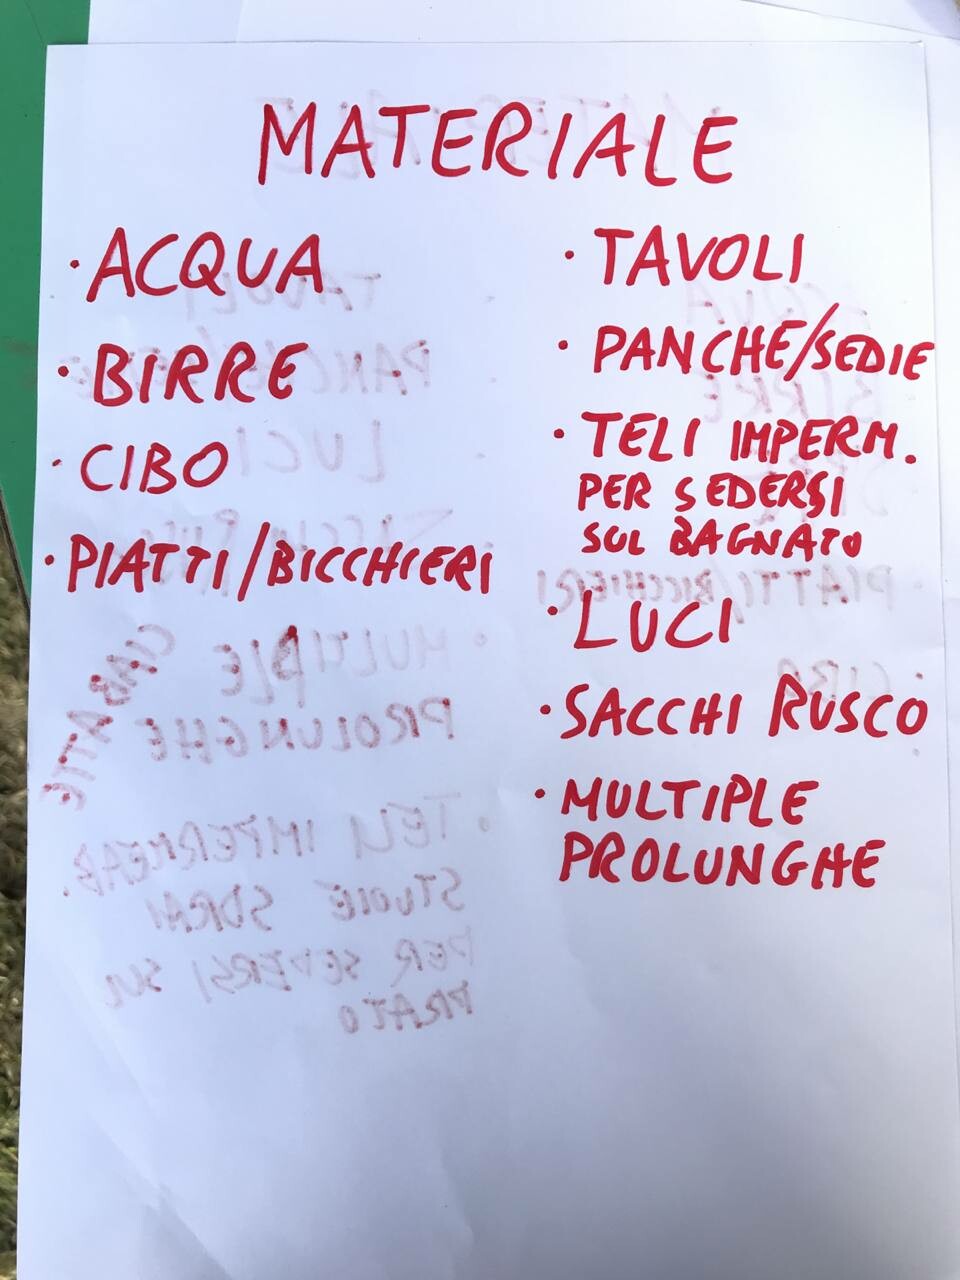 MATERIALE
· ACQUA
· BIRRE
· CIBO
· PIATTI/BICCHIERI
· TAVOLI
· PANCHE/SEDIE
· TELI IMPERM.
PER SEDERSI
SUL BAGNATO
· LUCI
· SACCHI RUSCO
· MULTIPLE
PROLUNGHE